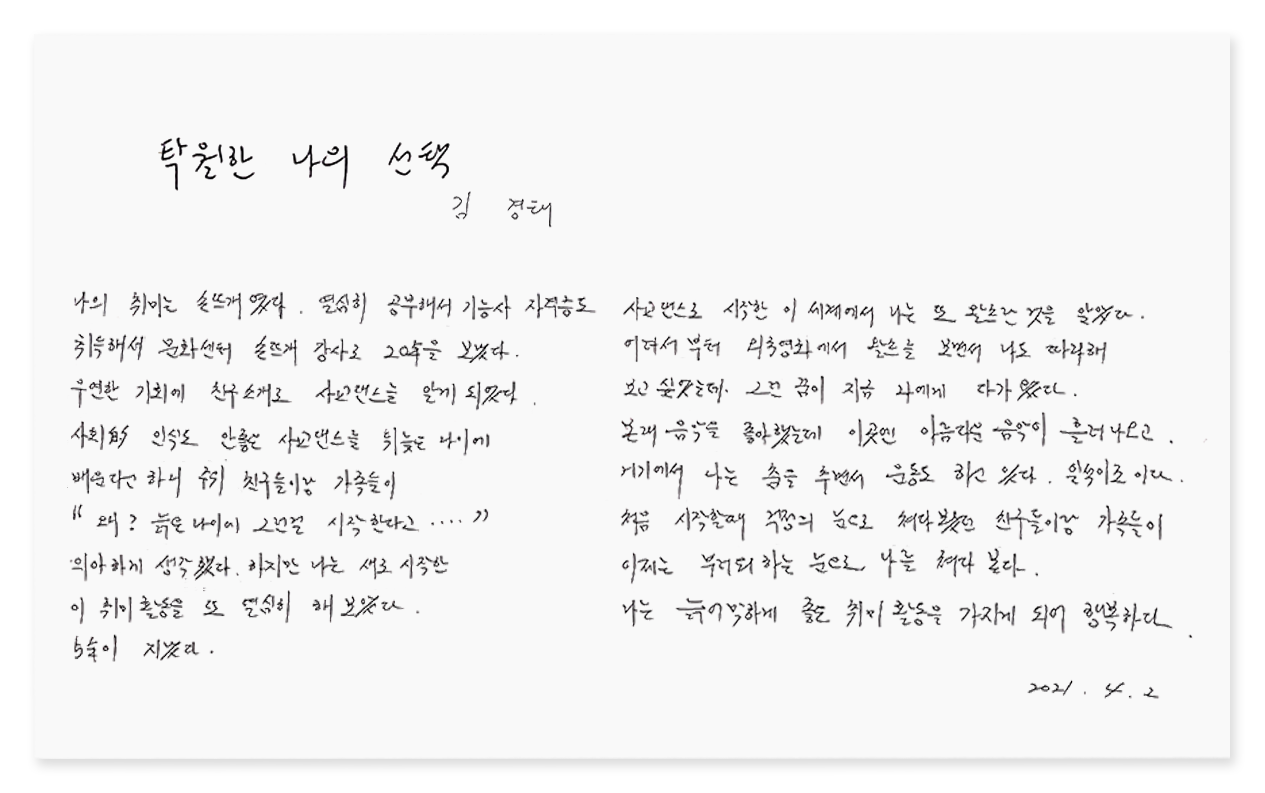 탁월한 나의 선택
김 경태
나의 취미는 손뜨개였다. 열심히 공부해서 기능사 자격증도
취득해서 문화센터 손뜨개 강사로 20年을 보냈다.
우연한 기회에 친구소개로 사교댄스를 알게 되었다.
사회的 인식도 안좋은 사교댄스를 뒤늦은 나이에
배운다고 하니 주위 친구들이랑 가족들이
“왜? 늙은 나이에 그런걸 시작한다고 ····”
의아하게 생각했다. 하지만 나는 새로 시작한
이 취미활동을 또 열심히 해 보았다.
5年이 지났다.
사교댄스로 시작한 이 세계에서 나는 또 왈츠란 것을 알았다.
어려서부터 외국영화에서 왈츠를 보면서 나도 따라해
보고 싶었는데. 그런 꿈이 지금 나에게 다가 왔다.
본래 음악을 좋아했는데 이곳엔 아름다운 음악이 흘러나오고.
거기에서 나는 춤을 추면서 운동도 하고 있다. 일석이조이다.
처음 시작할때 걱정의 눈으로 쳐다봤던 친구들이랑 가족들이
이제는 부러워 하는 눈으로 나를 쳐다 본다.
나는 늙어막하게 좋은 취미활동을 가지게 되어 행복하다.
2021. 4. 2